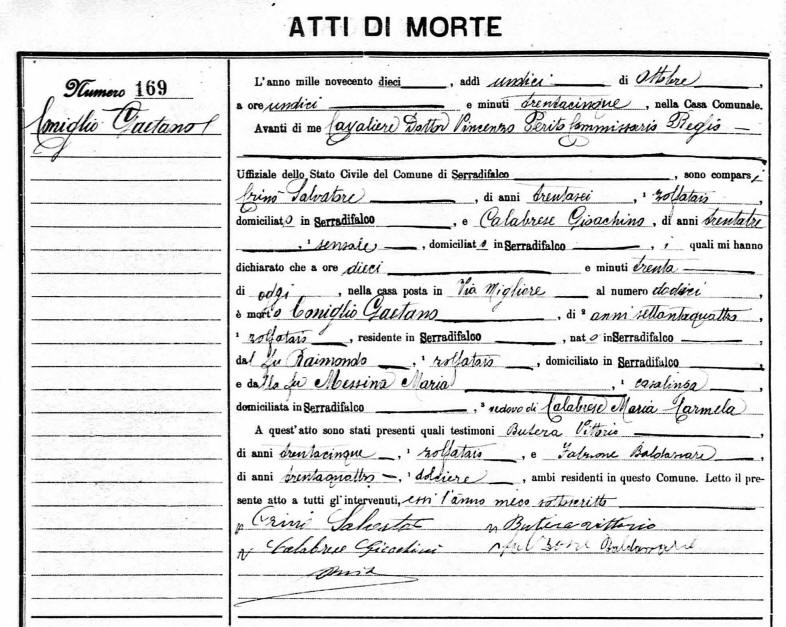 ATTI DI MORTE
Numero 169
Coniglio Gaetano
L'anno mille novecento dieci, addì undici di Ottobre,
a ore undici e minuti trentacinque, nella Casa Comunale.
Avanti di me Cavaliere Dottor Vincenzo Perito Commissario Regio
Uffiziale dello Stato Civile del Comune di Serradifalco, sono comparsi
Crinò Salvatore, di anni trentasei, ¹ zolfataio
domiciliato in Serradifalco, e Calabrese Gioachino, di anni trentatre
, ¹ sensale, domiciliato in Serradifalco, i quali mi hanno
dichiarato che a ore dieci e minuti trenta
di oggi, nella casa posta in Via Migliore al numero dodici,
è morto Coniglio Gaetano, di ² anni settantaquattro,
¹ zolfataio, residente in Serradifalco, nato in Serradifalco,
dal fu Raimondo, ¹ zolfataio, domiciliato in Serradifalco,
e dalla fu Messina Maria, ¹ casalinga,
domiciliata in Serradifalco, ³ vedovo di Calabrese Maria Carmela
A quest'atto sono stati presenti quali testimoni Butera Vittorio,
di anni trentacinque, ¹ zolfataio, e Falzone Baldassare,
di anni trentaquattro, ¹ dolciere, ambi residenti in questo Comune. Letto il pre-
sente atto a tutti gl'intervenuti, essi l'anno meco sottoscritto
Butera Vittorio
Calabrese Gioachini Falzone Baldassare